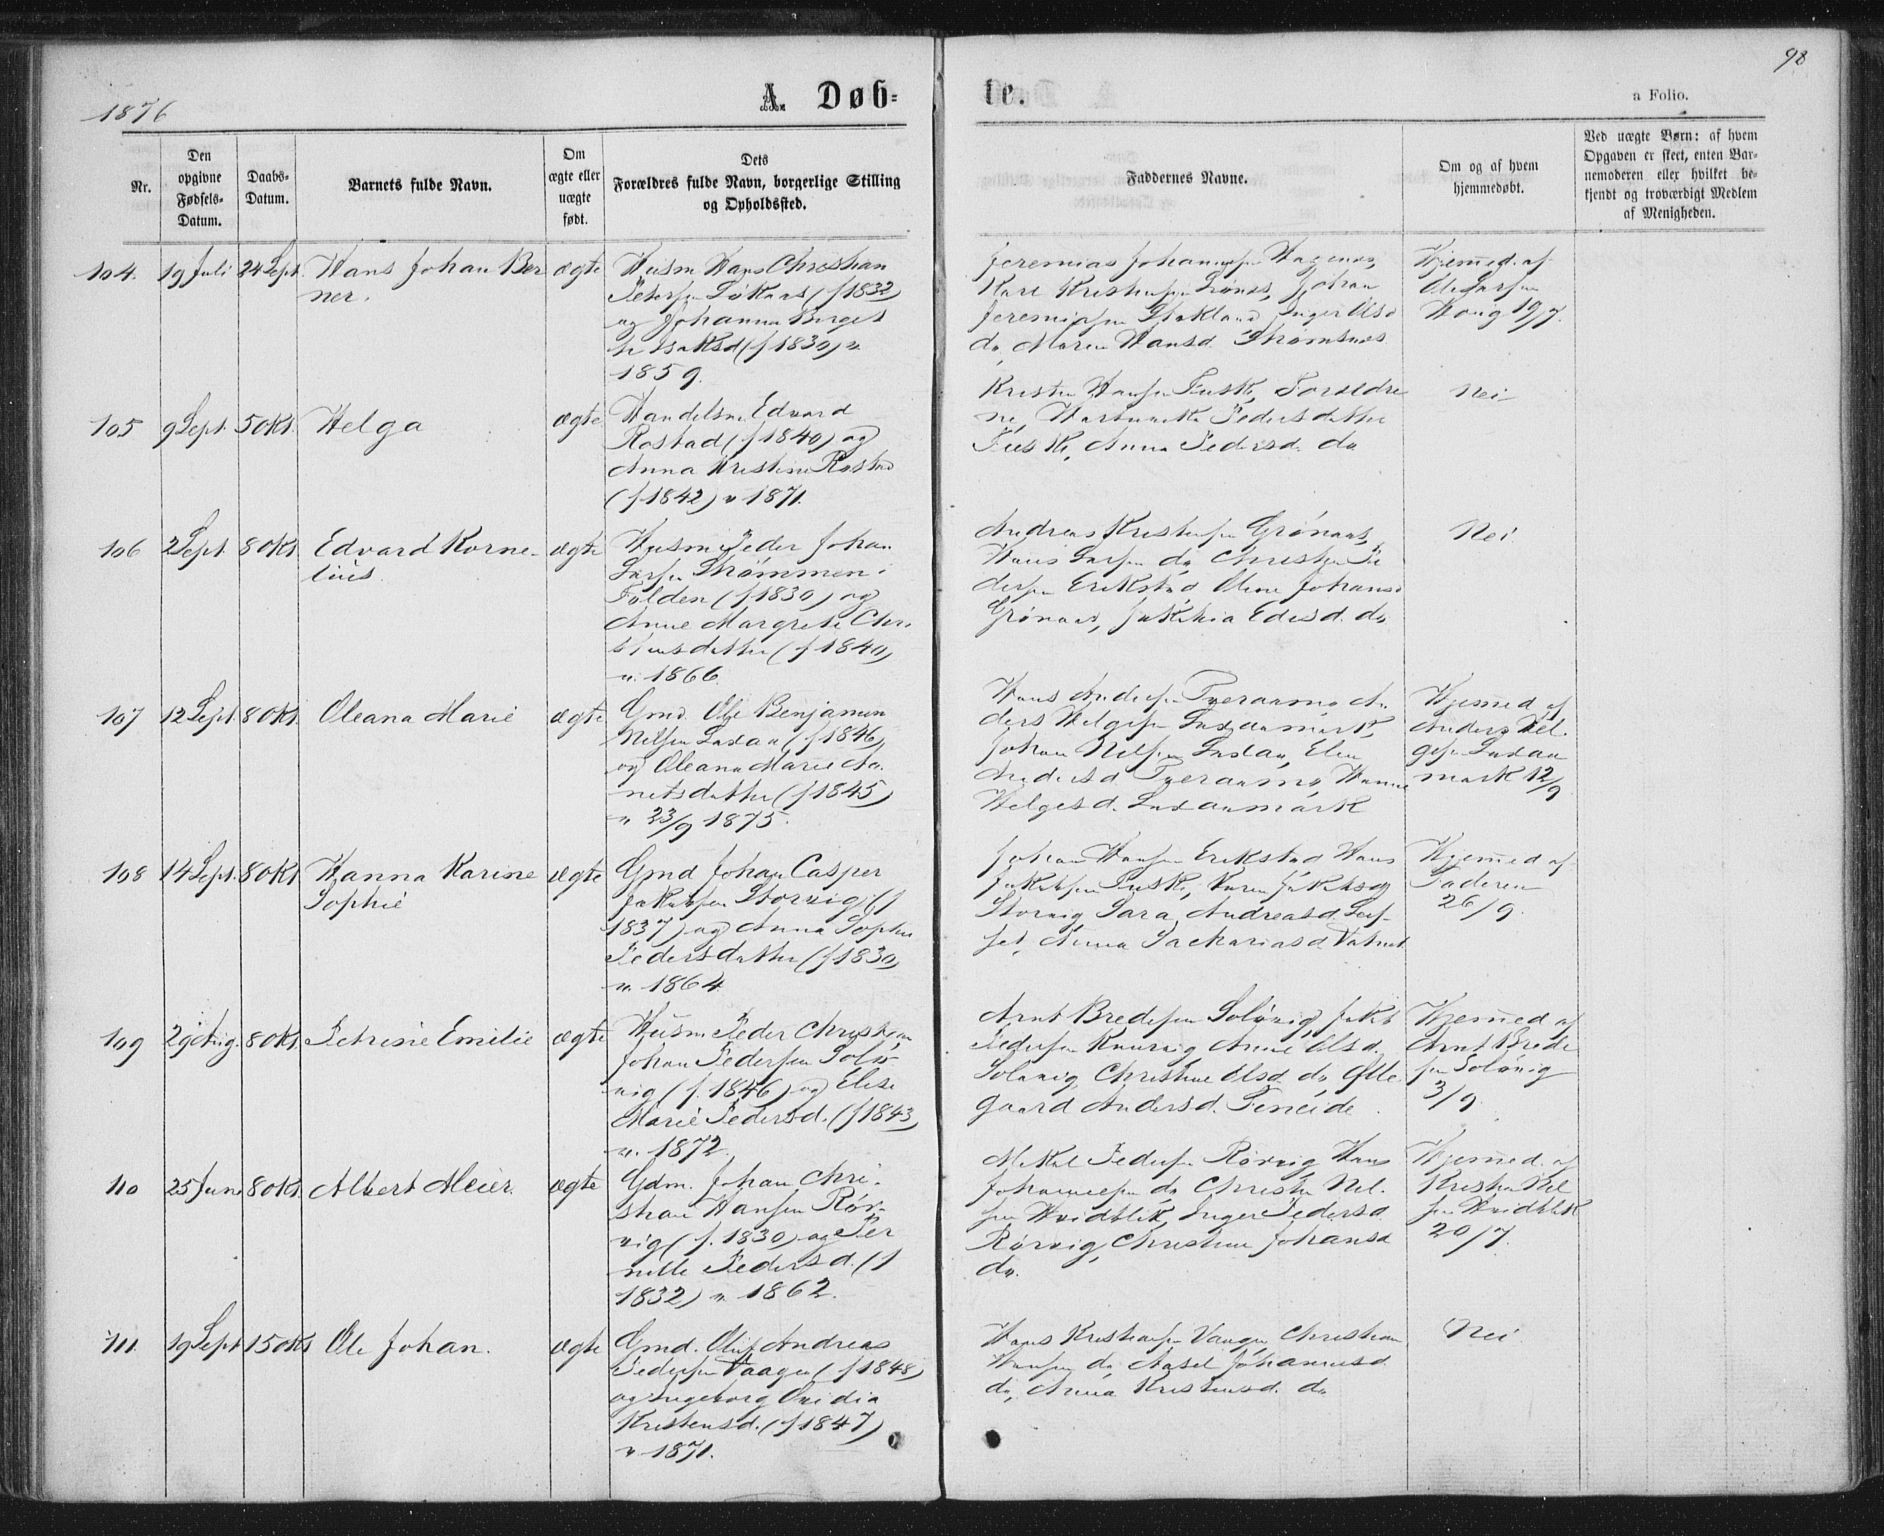 1876
98
A. Døb=
te.
a Folio.
Nr.
Den
opgivne
Fødsels-
Datum.
Daabs-
Datum.
Barnets fulde Navn.
Om
ægte eller
uægte
født.
Dets
Forældres fulde Navn, borgerlige Stilling
og Opholdssted.
Faddernes Navne.
Om og af hvem
hjemmedøbt.
Ved uægte Børn: af hvem
Opgaven er skeet, enten Bar-
nemoderen eller hvilket be-
kjendt og troværdigt Medlem
af Menigheden.
104. 19 Juli 24 Sept. Hans Johan Ber
ner.
ægte
Husm Hans Christian
Petersen (f 1832)
og Johanna Berget
te Isaksd (f 1830) v.
1859.
Jeremias Johannesen
Karl Kristensen Johan
Jeremiasen Inger Olsd
do, Maren Hansd. Strømsnes
Hjemmed. af
Ole Larsen
Haug 19/7.
105 9 Sept. 5 Okt. Helga
ægte
Handelsm. Edvard
Rostad (f 1840) og
Anna Kristine Rostad
(f 1842) v 1871.
Kristen Hansen Fuske, Forældre
ne, Pedersdatter
Fuske, Anna Pedersd. do
Nei
106 2 Sept. 8 Okt. Edvard Korne-
lius.
ægte
Husm Peder Johan
Larsen Strømmen i
Folden (f 1830) og
Anne Margrete Chri
stensdatter (f 1840)
v. 1866.
Andreas Kristensen Grønaas,
Hans Larsen do, Christen Pe
dersen Erikstad, Oline Johansd
Grønaas, Edisd. do
Nei
107 12 Sept. 8 Okt. Oleana Marie
ægte
Gmd. Ole Benjamin
Nilsen Laxaa (f 1846)
og Oleana Marie Ar-
netsdatter (f 1845)
v 23/9 1875.
Hans Andersen Tveraamo, An
ders Helgesen Laxaamark,
Johan Nilsen Laxaa, Elen
Andersd Tveraamo, Hanna
Helgesd. Laxaamark
Hjemmed af
Anders Hel-
gesen Laxaa
mark 12/9
108 14 Sept. 8 Okt. Hanna Karine
Sophie
ægte
Gmd Johan Casper
Jakobsen Storvig (f
1837) og Anna Sophie
Pedersdatter (f 1830)
v. 1864
Johan Hansen Erikstad, Hans
Jakobsen Fuske, Karen Jakobsd
Storvig Sara Andreasd.
Anna Sackariasd. Vatnet
Hjemmed af
Faderen
26/9.
109 29 Aug. 8 Okt. Petrine Emilie
ægte
Husm Peder Christian
Johan Pedersen Solø-
vig (f. 1846) og Elise
Marie Pedersd. (f 1843)
v. 1872.
Arnt Bredesen Solövig, Jakob
Pedersen Anne Olsd
Solövig, Christine Olsd. do, Olle
gaard Andersd. Feneide.
Hjemmed af
Arnt Brede
sen Solövig
3/9
110 25 Juni 8 Okt. Albert Meier.
ægte
Gdm. Johan Chri-
stian Hansen Rør-
vig (f. 1830) og Per
nille Pedersd. (f
1832) v. 1862.
Mikal Pedersen Rørvig, Hans
Johannesen do, Christen Nil-
sen Hvidblik, Inger Pedersd.
Rørvig, Christine Johansd
do.
Hjemmed. af
Kristen Nil
sen Hvidblik
20/7.
111. 19 Sept 15 Okt Ole Johan.
ægte
Gmd. Oluf Andreas
Pedersen Vaagen (f 1848)
og Ingeborg Ovidia
Kristensd. (f 1847)
v 1871.
Hans Kristensen Vaagen, Christian
Hansen do, Aasel Johannesd.
do, Anna Kristensd. do
Nei